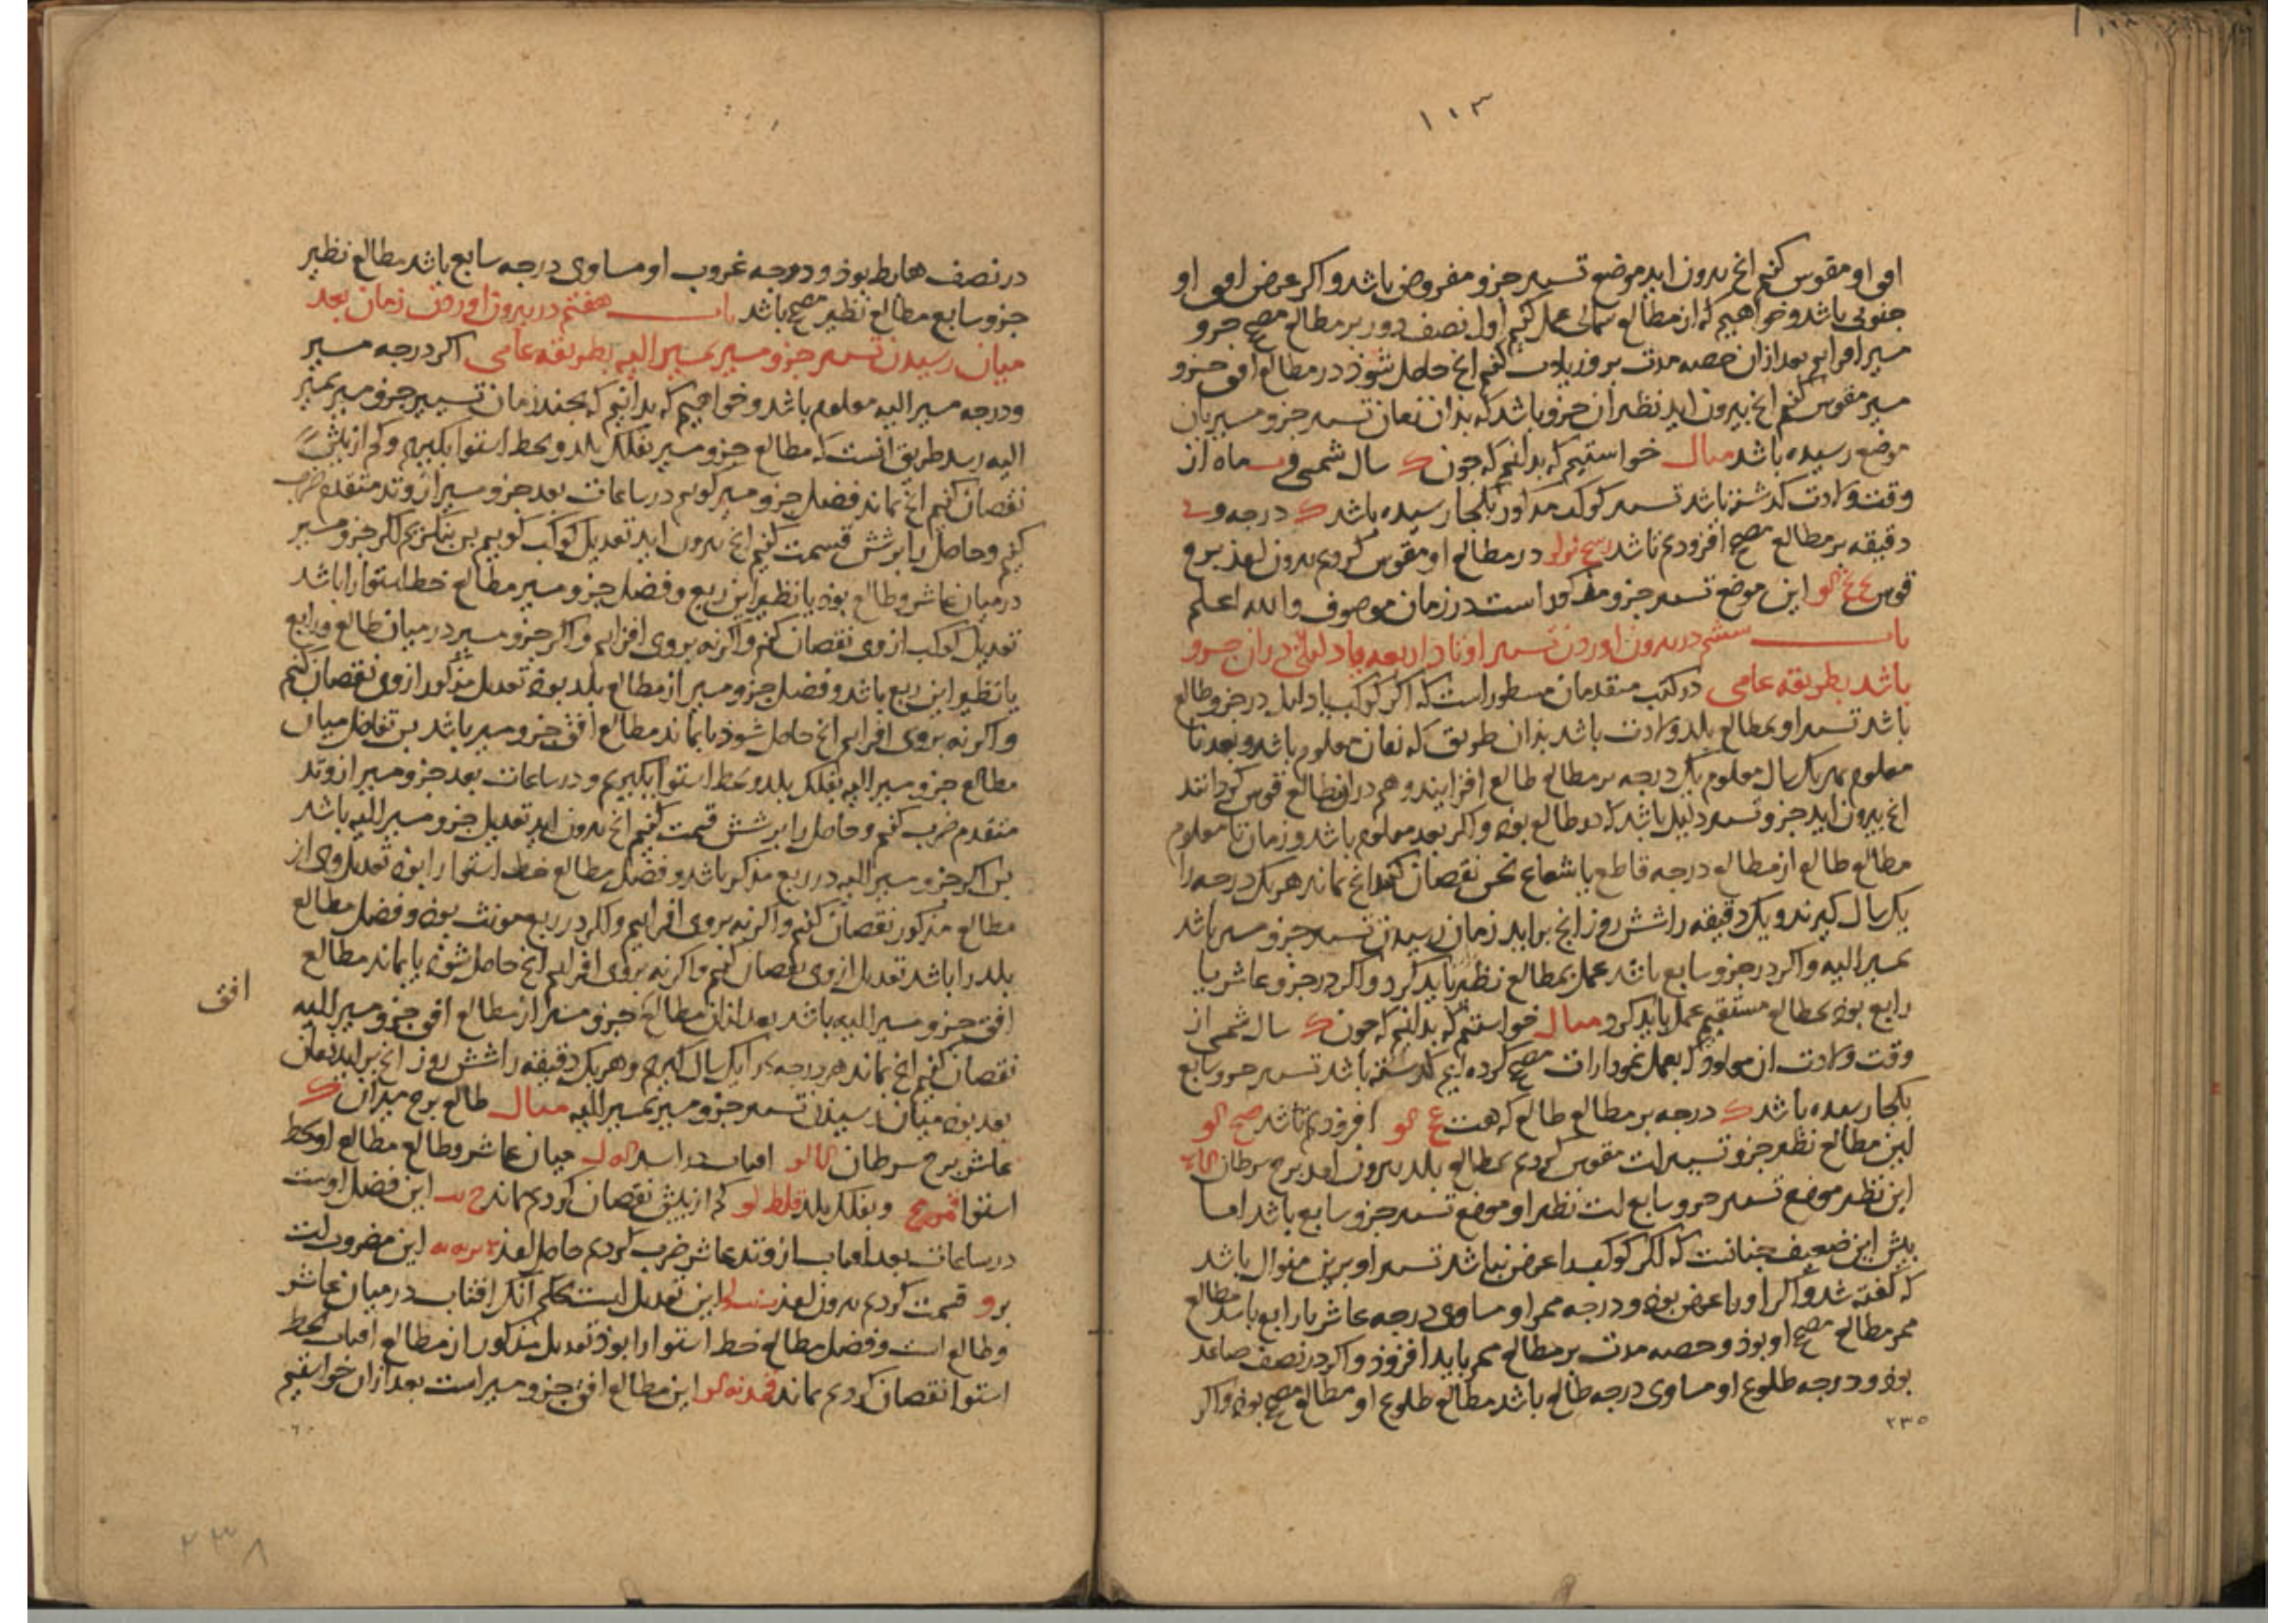 ۱۰۳
افق او مقوس کنیم انچ بیرون اید موضع تسییر جزو مفروض باشد و اکر عرض افق او
جنوبی باشد و خواهیم که از مطالع شمالی عمل کنیم اول نصف دور بر مطالع مصحح جزو
مسیر افزاییم بعد ازان حصه مدت برو زیادت کنیم انچ حاصل شوذ در مطالع افق جزو
مسیر مقوس کنیم انچ بیرون اید نظیر ان جزو باشد که بذان زمان تسییر جزو مسیر بان
موضع رسیده باشد مثال خواستیم که بدانیم که جون ک سال شمسی و ماه از
وقت ولادت کذشته باشد تسییر کوکب مذکور بکجا رسیده باشد ک درجه و
دقیقه بر مطالع مصحح افزودیم تا شد در مطالع او مقوس کردیم بیرون امذ برج
قوس این موضع تسییر جزو مذکور است در زمان موصوف والله اعلم
باب ششم در بیرون اوردن تسییر اوتاد اربعه یا دلیلی در ان جزو
باشد بطریقه عامی در کتب متقدمان مسطور است که اکر کوکب یا دلیل در جزو طالع
باشد تسییر او بمطالع بلد ولادت باشد بذان طریق که زمان معلوم باشد و بعد نا
معلوم بهر یک سال معلوم یک درجه بر مطالع طالع افزایند و هم دران مطالع قوس کردانند
انچ بیرون اید جزو تسییر دلیل باشد که در طالع بوذ و اکر بعد معلوم باشد و زمان نا معلوم
مطالع طالع از مطالع درجه قاطع یا شعاع نحس نقصان کنند انچ بماند هر یک درجه را
یک سال کیرند و یک دقیقه را شش روز انچ براید زمان رسیدن تسییر جزو مسیر باشد
بمسیر الیه و اکر در جزو سابع باشد عمل بمطالع نظیر باید کرد و اکر در جزو عاشر یا
رابع بوذ بمطالع مستقیم عمل باید کرد مثال خواستیم که بدانیم که جون ک سال شمسی از
وقت ولادت ان مولود که بعمل نمودارات مصحح کرده ایم کذشته باشد تسییر جزو سابع
بکجا رسیده باشد ک درجه بر مطالع طالع که هست افزودیم تا شد
این مطالع نظیر جزو تسییرات مقوس کردیم بمطالع بلد بیرون امد برج سرطان
این نظیر موضع تسییر جزو سابع است نظیر او موضع تسییر جزو سابع باشد اما
بیش این ضعیف جنانست که اکر کوکب را عرض نباشد تسییر او برین منوال باشد
که کفته شد و اکر او را عرض بوذ و درجه ممر او مساوی درجه عاشر یا رابع باشد مطالع
ممر مطالع مصحح او بوذ و حصه مدت بر مطالع ممر باید افزوذ و اکر در نصف صاعد
بوذ و درجه طلوع او مساوی درجه طالع باشد مطالع طلوع او مطالع مصحح بوذ و اکر
۲۳۵
در نصف هابط بوذ و درجه غروب او مساوی درجه سابع باشد مطالع نظیر
جزو سابع مطالع نظیر مصحح باشد باب هفتم در بیرون اوردن زمان بعد
میان رسیدن تسییر جزو مسیر بمسیر الیه بطریقه عامی اکر درجه مسیر
و درجه مسیر الیه معلوم باشد و خواهیم که بدانیم که بجند زمان تسییر جزو مسیر بمسیر
الیه رسد طریق انست که مطالع جزو مسیر بفلک بلد و بخط استوا بکیریم و کم از بیش
نقصان کنیم انچ بماند فضل جزو مسیر کوییم در ساعات بعد جزو مسیر از وتد متقدم ضرب
کنیم و حاصل را بر شش قسمت کنیم انچ بیرون اید تعدیل کوکب کوییم بس بنکریم اکر جزو مسیر
در میان عاشر و طالع بوذ یا نظیر این ربع و فضل جزو مسیر مطالع خط استوا را باشد
تعدیل کوکب از وی نقصان کنیم و اکر نه بر وی افزاییم و اکر جزو مسیر در میان طالع و رابع
یا نظیر این ربع باشد و فضل جزو مسیر از مطالع بلد بوذ تعدیل مذکور از وی نقصان کنیم
و اکر نه بروی افزاییم انچ حاصل شوذ یا بماند مطالع افق جزو مسیر باشد بس تفاضل میان
مطالع جزو مسیر الیه بفلک بلد و بخط استوا بکیریم و در ساعات بعد جزو مسیر از وتد
متقدم ضرب کنیم و حاصل را بر شش قسمت کنیم انچ بیرون اید تعدیل جزو مسیر الیه باشد
بس اکر جزو مسیر الیه در ربع مذکر باشد و فضل مطالع خط استوا را بوذ تعدیل وی از
مطالع مذکور نقصان کنیم و اکر نه بروی افزاییم و اکر در ربع مونث بوذ و فضل مطالع
بلد را باشد تعدیل از وی نقصان کنیم و اکر نه بروی افزاییم انچ حاصل شوذ یا بماند مطالع
افق
افق جزو مسیر الیه باشد بعد ازان مطالع جزو مسیر از مطالع افق جزو مسیر الیه
نقصان کنیم انچ بماند هر درجه را یک سال کیریم و هر یک دقیقه را شش روز انچ براید زمان
بعد بوذ میان رسیدن تسییر جزو مسیر بمسیر الیه مثال طالع برج میزان ک
عاشر برج سرطان افتاب در اسد میان عاشر و طالع مطالع او بخط
استوا و بفلک بلد کم از بیش نقصان کردیم بماند این فضل اوست
در ساعات بعد افتاب از وتد عاشر ضرب کردیم حاصل امذ این مضروبست
برو قسمت کردیم بیرون امذ این تعدیل است بحکم آنک افتاب در میان عاشر
و طالع است و فضل مطالع خط استوا را بوذ تعدیل مذکور از مطالع افتاب بخط
استوا نقصان کردیم بماند این مطالع افق جزو مسیر است بعد ازان خواستیم